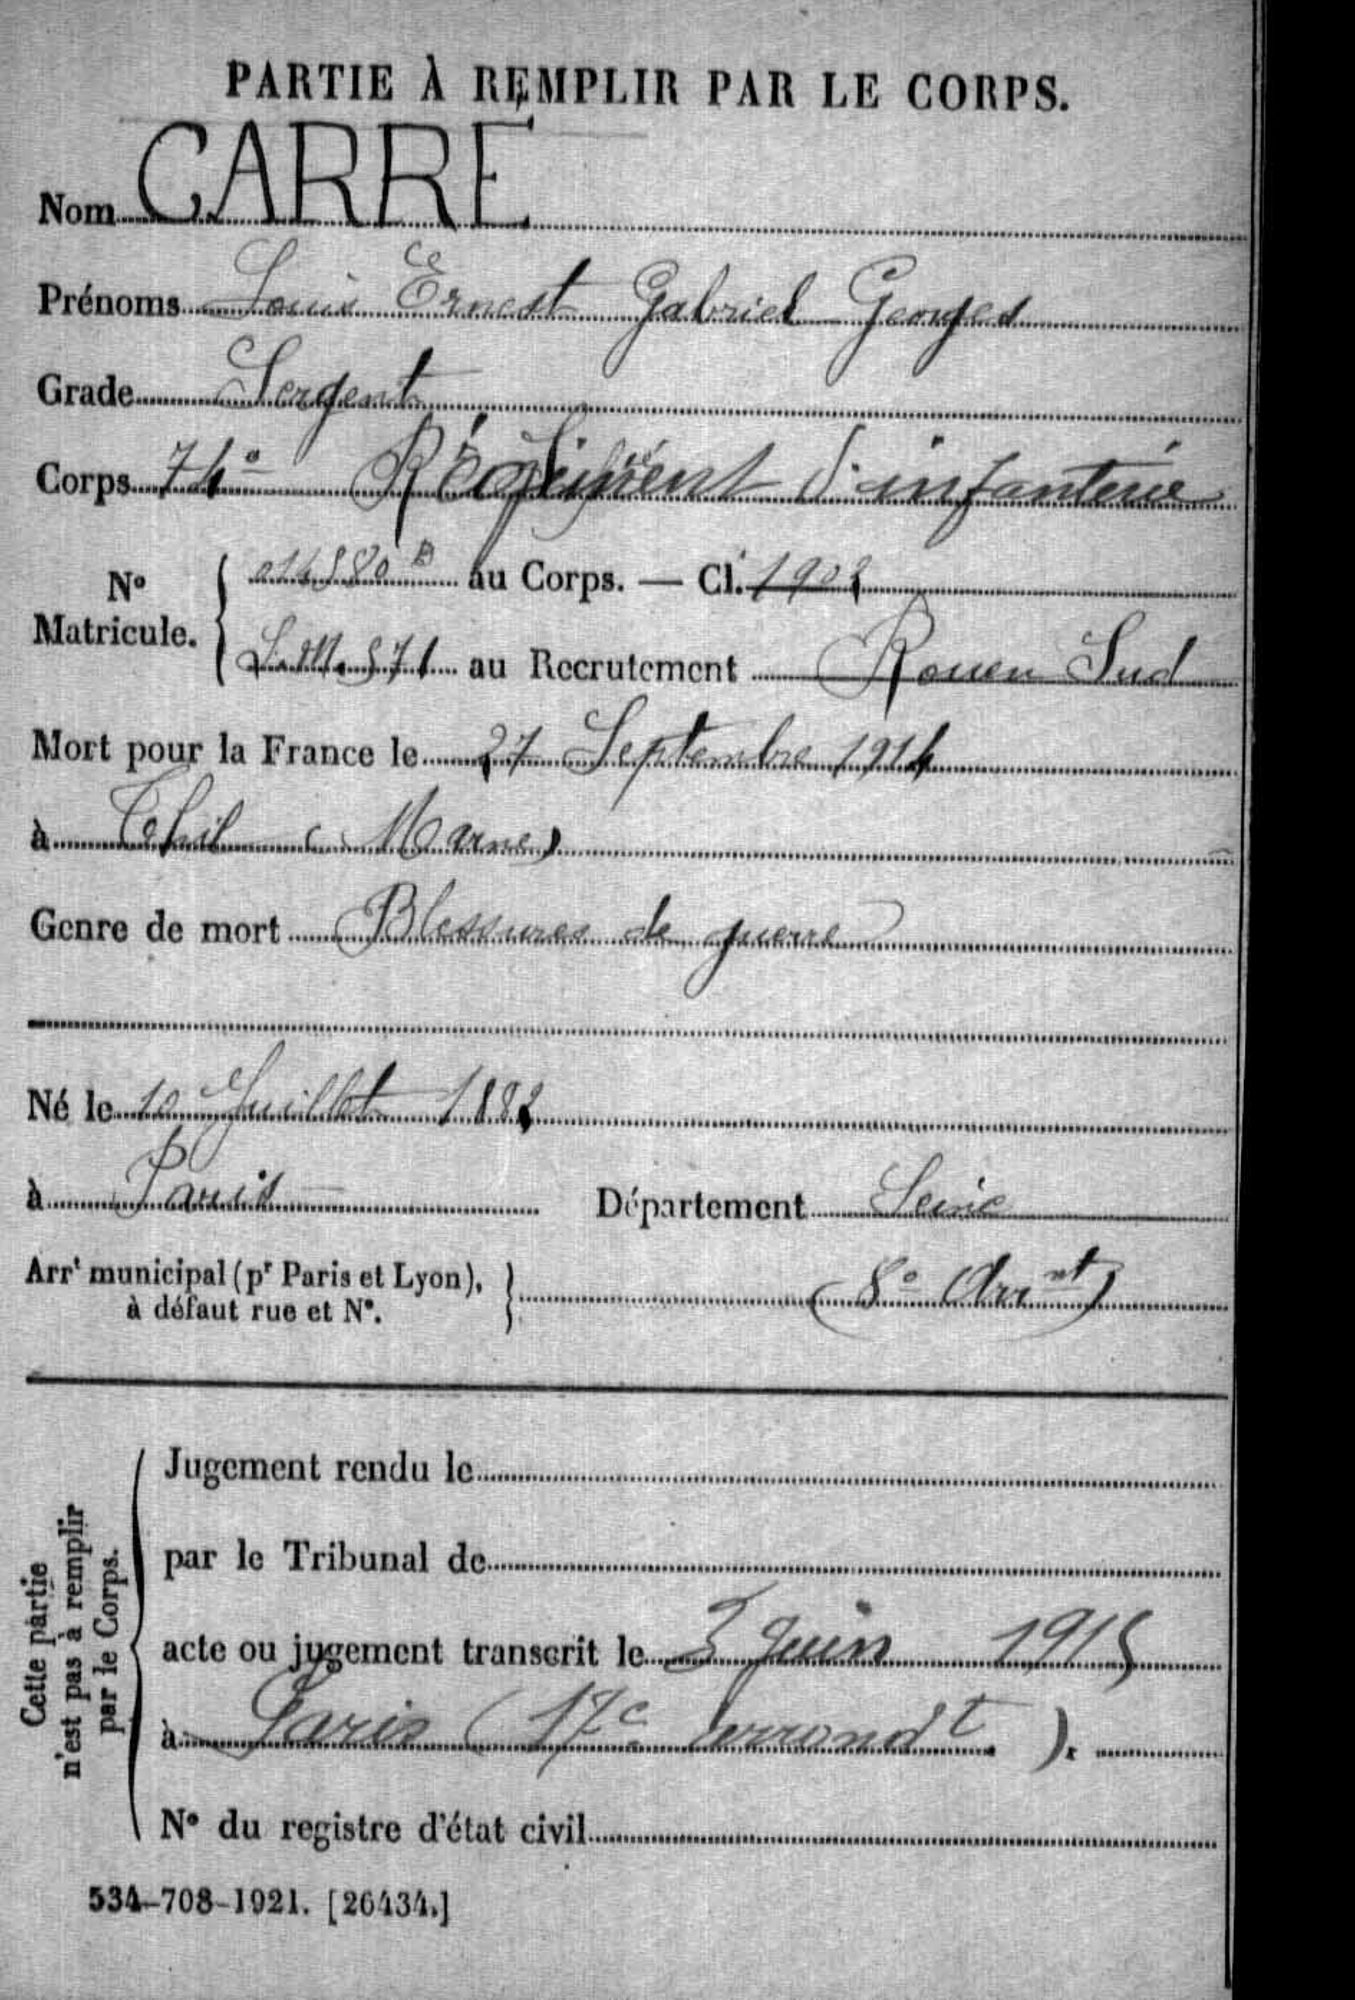 PARTIE À REMPLIR PAR LE CORPS.
Nom CARRÉ
Prénoms Louis Ernest Gabriel Georges
Grade Sergent
Corps 74e Régiment d'infanterie
No Matricule. { 014580 B au Corps. — Cl. 1902
L.M. 571 au Recrutement Rouen Sud
Mort pour la France le 27 Septembre 1914
à Thil (Marne)
Genre de mort Blessures de guerre
Né le 10 Juillet 1882
à Paris Département Seine
Arrt municipal (pr Paris et Lyon), à défaut rue et No. } (8e Arrnt)
Cette partie n'est pas à remplir par le Corps.
Jugement rendu le
par le Tribunal de
acte ou jugement transcrit le 3 Juin 1915
à Paris (17e arrondt.).
No du registre d'état civil
534-708-1921. [26434.]